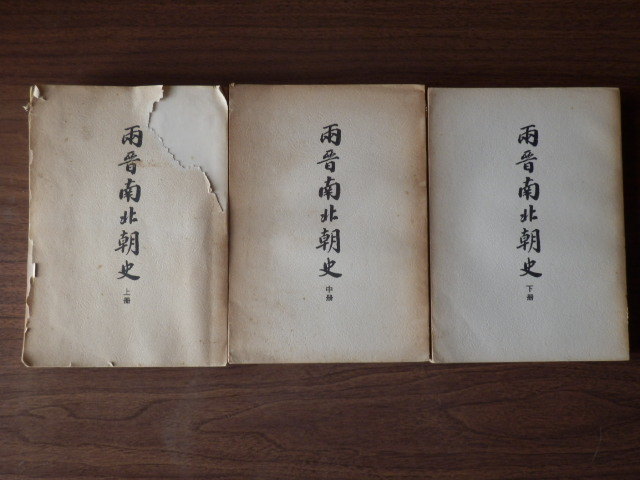 兩晉南北朝史
上册
兩晉南北朝史
中册
兩晉南北朝史
下册